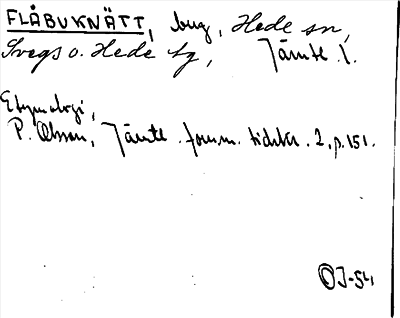 FLÅBUKNÄTT, bug, Hede sn,
Svegs o. Hede tg, Jämtl. l.
Etymologi,
P. Olsson, Jämtl. fornm. tidskr. 2, p. 151.
OJ-54